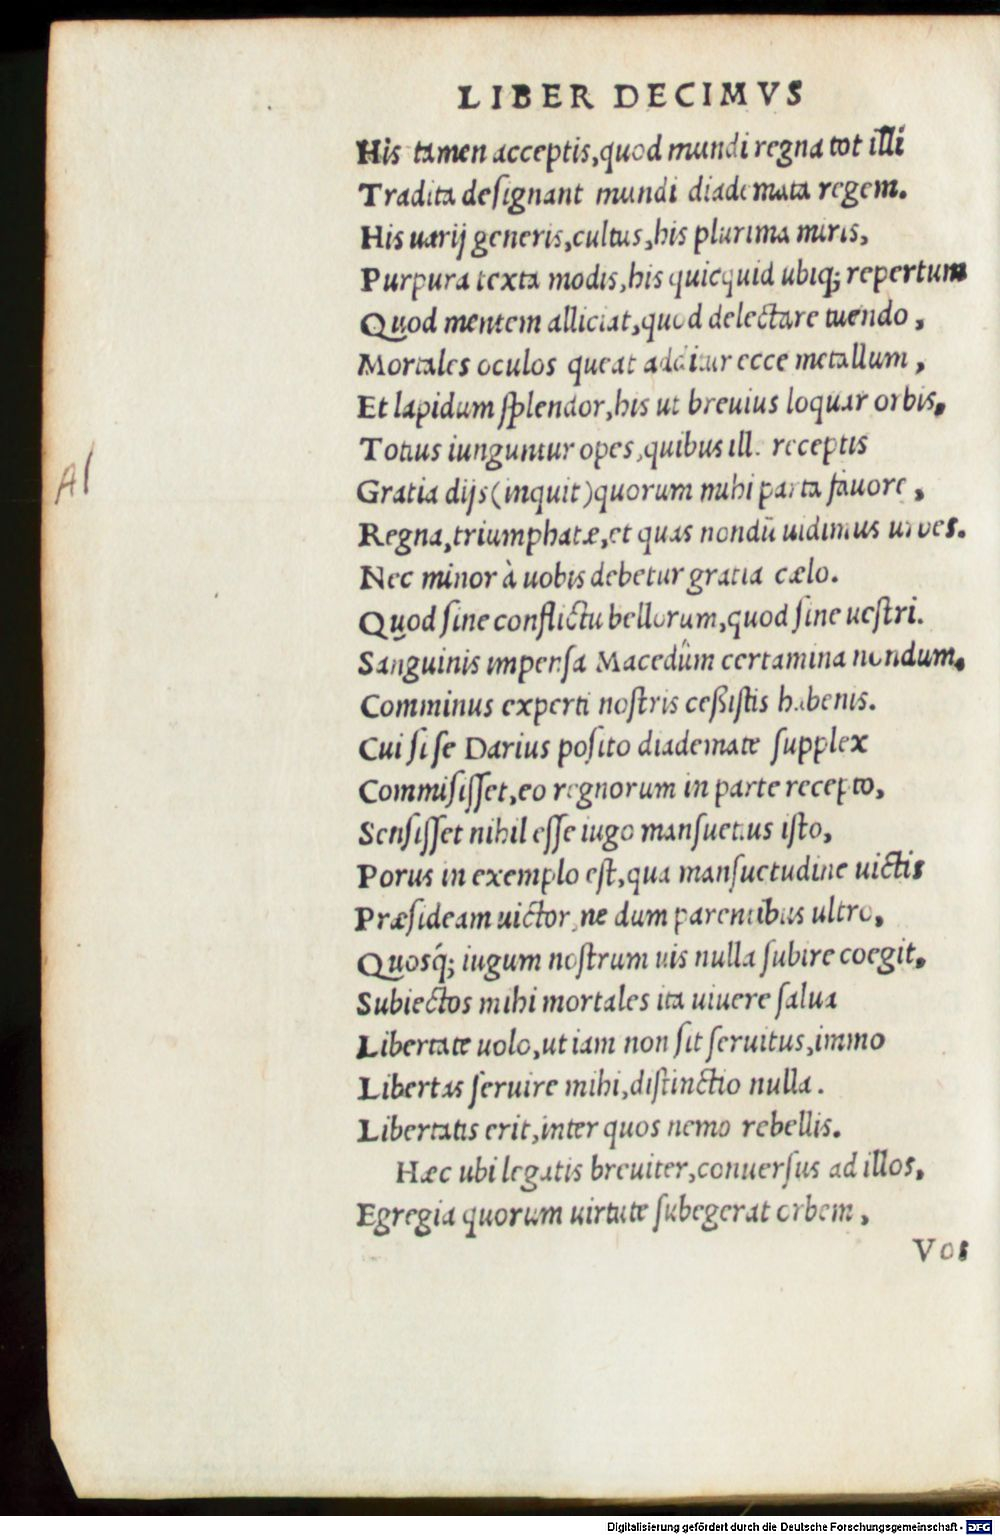 LIBER DECIMVS
His tamen acceptis,quod mundi regna tot illi
Tradita deſignant mundi diademata regem.
His uarij generis,cultus,his plurima miris,
Purpura texta modis,his quicquid ubiq; repertum
Quod mentem alliciat,quod delectare tuendo ,
Mortales oculos queat additur ecce metallum ,
Et lapidum ſplendor,his ut breuius loquar orbis,
Totius iunguntur opes,quibus ill. receptis
Gratia dijs(inquit)quorum mihi parta fauore ,
Regna,triumphatæ,et quas nondū uidimus urbes.
Nec minor à uobis debetur gratia cælo.
Quod ſine conflictu bellorum,quod ſine ueſtri.
Sanguinis impenſa Macedûm certamina nondum.
Comminus experti noſtris ceßiſtis habenis.
Cui ſi ſe Darius poſito diademate ſupplex
Commiſiſſet,eo regnorum in parte recepto,
Senſiſſet nihil eſſe iugo manſuetius iſto,
Porus in exemplo eſt,qua manſuetudine uictis
Præſideam uictor,ne dum parentibus ultro,
Quosq́; iugum noſtrum uis nulla ſubire coegit.
Subiectos mihi mortales ita uiuere ſalua
Libertate uolo,ut iam non ſit ſeruitus,immo
Libertas ſeruire mihi,diſtinctio nulla .
Libertatis erit,inter quos nemo rebellis.
Hæc ubi legatis breuiter,conuerſus ad illos,
Egregia quorum uirtute ſubegerat orbem ,
Vos
Al
Digitalisierung gefördert durch die Deutsche Forschungsgemeinschaft - DFG